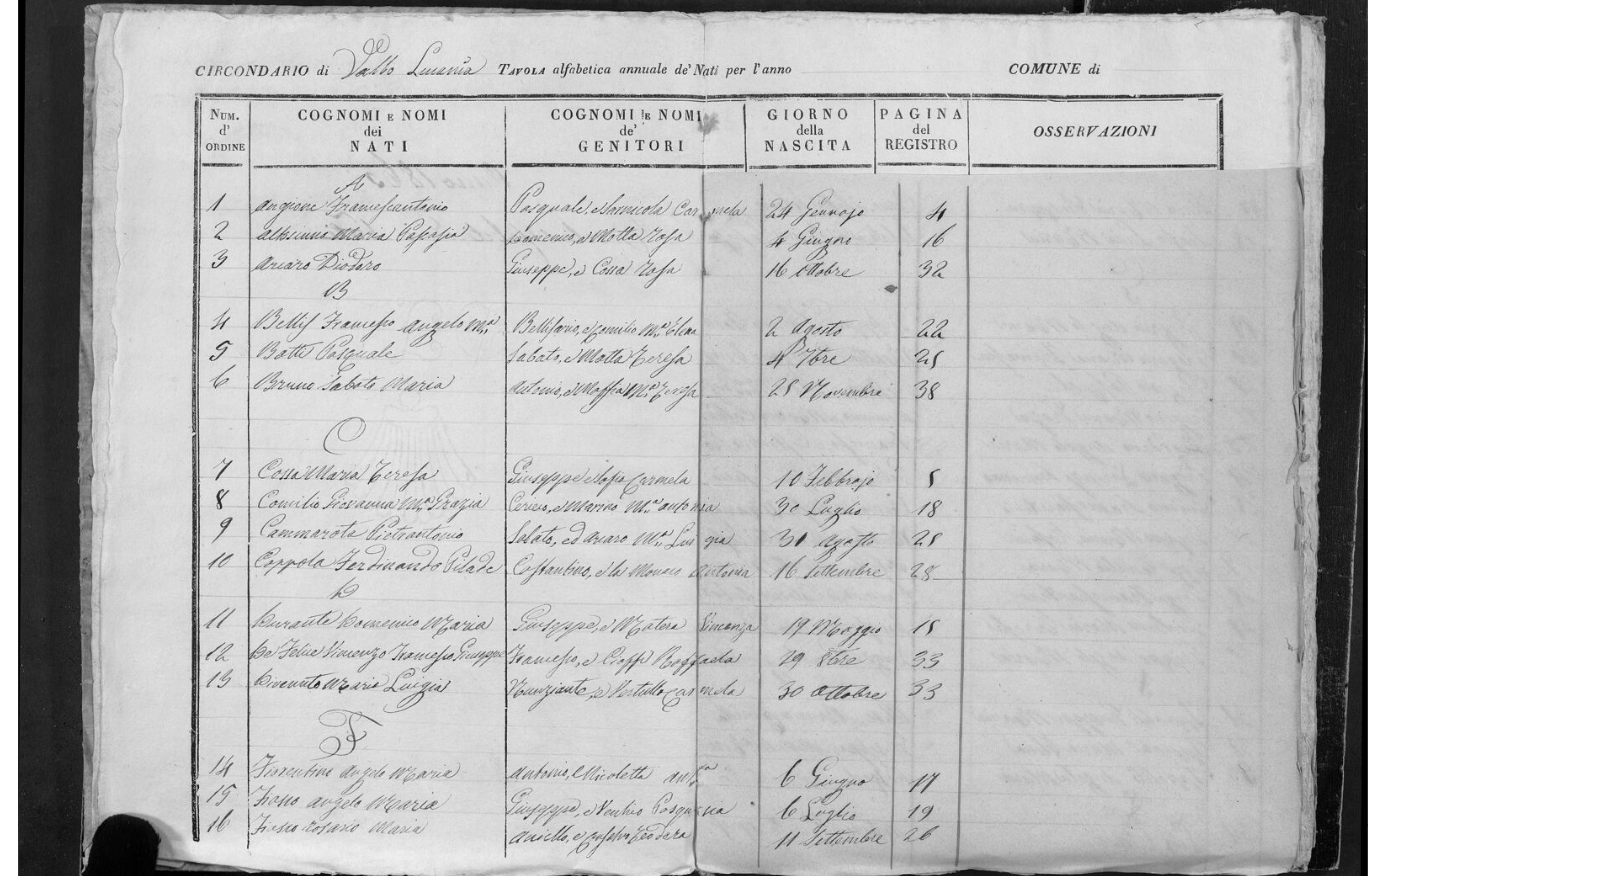 CIRCONDARIO di Vallo Lucania TAVOLA alfabetica annuale de' Nati per l'anno COMUNE di
NUM. d' ORDINE COGNOMI E NOMI dei NATI COGNOMI E NOMI de' GENITORI GIORNO della NASCITA PAGINA del REGISTRO OSSERVAZIONI
A
1 Francescantonio Pasquale, e Carmela 24 Gennajo 4
2 Maria Domenico, e Motta Rosa 4 Giugno 16
3 Ariaro Diodoro Giuseppe, e Cossa Rosa 16 Ottobre 32
B
4 Francesco Angelo Ma. Bellisario, e Comilio Ma. Elena 2 Agosto 22
5 Botti Pasquale Sabato, e Motta Teresa 4 7bre 25
6 Bruno Sabato Maria Antonio, e Ma. Teresa 28 Novembre 38
C
7 Cossa Maria Teresa Giuseppe e Carmela 10 Febbrajo 5
8 Comilio Giovanna Ma. Grazia e Marino Ma. Antonia 30 Luglio 18
9 Cammarota Pietrantonio Sabato, ed Ariaro Ma. Luigia 31 Agosto 25
10 Coppola Ferdinando Pilade Costantino, e la Monaca Antonia 16 Settembre 28
D
11 Durante Domenico Maria Giuseppe, e Matera Vincenza 17 Maggio 15
12 De Felice Vincenzo Francesco Giuseppe Francesco, e Cioffi Raffaela 29 8bre 33
13 Maria Luigia Nunziante, e Vertullo Carmela 30 Ottobre 33
F
14 Fiorentino Angelo Maria Antonio, e Nicoletti Anta. 6 Giugno 17
15 Angelo Maria Giuseppe, e Pasqua 6 Luglio 19
16 Rosario Maria Aniello, e Teodora 11 Settembre 26